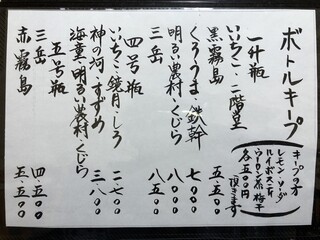 ボトルキープ
キープの方
レモン・ソーダ
ルイボス茶
ウーロン茶 梅干
各五〇〇円
頂きます
一升瓶
いいちこ・二階堂
黒霧島 五・五〇〇
くろうま 鉄幹 七〇〇〇
明るい農村・くじら 八・〇〇〇
三岳 八・五〇〇
四号瓶
いいちこ・鏡月・しろ 二・七〇〇
神の河・すずめ 三・八〇〇
海童・明るい農村・くじら
五号瓶
三岳 四・五〇〇
赤霧島 五・五〇〇